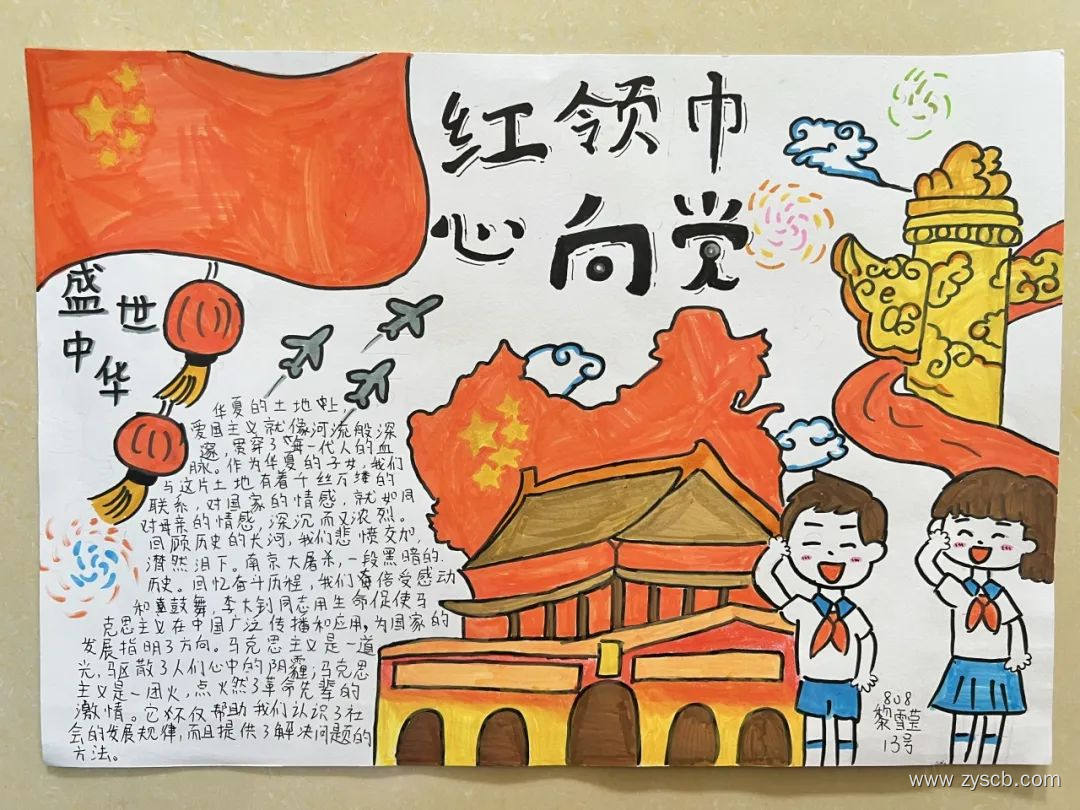 红领巾
心向党
盛世
中华
华夏的土地上,
爱国主义就像河流般深
邃,贯穿了每一代人的血
脉。作为华夏的子女,我们
与这片土地有着千丝万缕的
联系,对国家的情感,就如同
对母亲的情感,深沉而又浓烈。
回顾历史的长河,我们悲愤交加,
潸然泪下。南京大屠杀,一段黑暗的
历史。回忆奋斗历程,我们备倍受感动
和鼓舞,李大钊同志用生命促使马
克思主义在中国广泛传播和应用,为国家的
发展指明了方向。马克思主义是一道
光,驱散了人们心中的阴霾;马克思
主义是一团火,点火然了革命先辈的
激情。它不仅帮助我们认识了社
会的发展规律,而且提供了解决问题的
方法。
808
黎雪莹
13号
www.zyscb.com